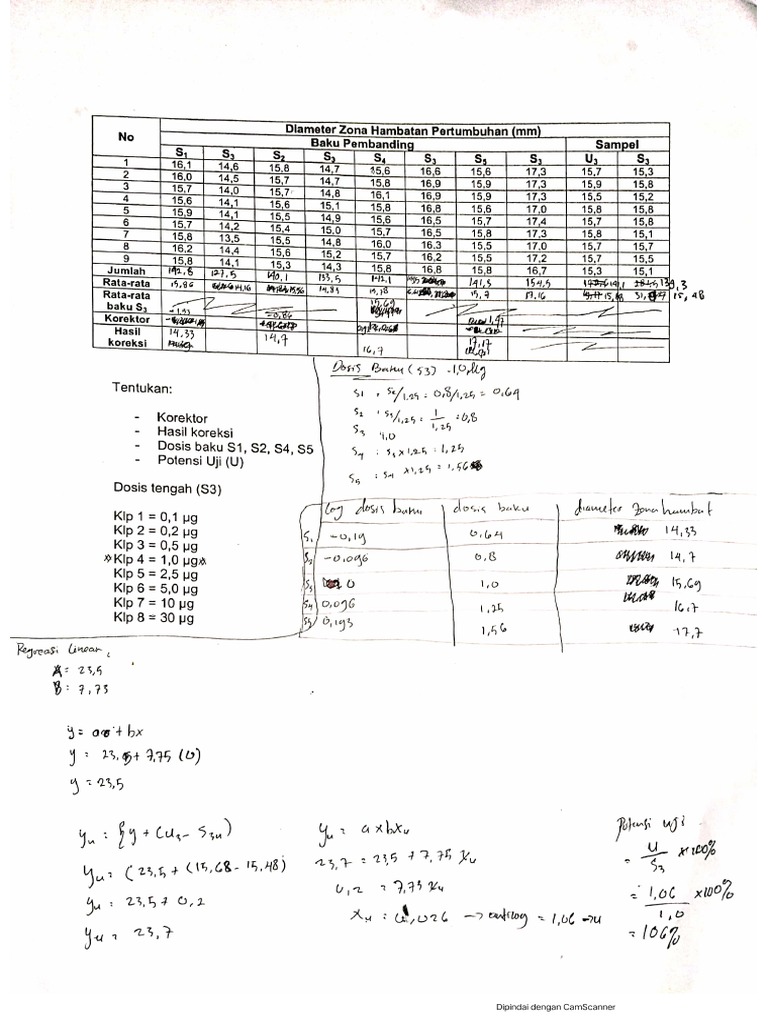 No Diameter Zona Hambatan Pertumbuhan (mm)
Baku Pembanding Sampel
S1 S3 S2 S3 S4 S3 S5 S3 U3 S3
1 16,1 14,6 15,8 14,7 15,6 16,6 15,6 17,3 15,7 15,3
2 16,0 14,5 15,7 14,7 15,8 16,6 15,9 17,3 15,9 15,8
3 15,7 14,0 15,7 14,8 16,1 16,9 15,9 17,3 15,5 15,2
4 15,6 14,1 15,6 15,1 15,8 16,8 15,6 17,0 15,8 15,8
5 15,9 14,1 15,5 14,9 15,6 16,5 15,7 17,4 15,7 15,8
6 15,7 14,2 15,4 15,0 15,7 16,5 15,8 17,3 15,8 15,1
7 15,8 13,5 15,5 14,8 16,0 16,3 15,5 17,0 15,7 15,7
8 16,2 14,4 15,6 15,2 15,7 16,6 15,5 17,2 15,7 15,5
9 15,8 14,1 15,3 14,3 15,8 16,8 15,8 16,7 15,3 15,1
Jumlah 142,8 127,5 140,1 133,5 142,1 141,3 154,5 139,3
Rata-rata 15,86 14,16 15,56 14,83 15,78 15,7 17,16 15,48
Rata-rata baku S3 15,69
Korektor -0,86 1,47
Hasil koreksi 14,33 14,7 16,7 17,17
Dosis Baku (S3) = 1,0 µg
S1 : S2/1,25 = 0,8/1,25 = 0,64
S2 : S3/1,25 = 1/1,25 = 0,8
S3 1,0
S4 : S3 x 1,25 = 1,25
S5 : S4 x 1,25 = 1,56
Tentukan:
- Korektor
- Hasil koreksi
- Dosis baku S1, S2, S4, S5
- Potensi Uji (U)
Dosis tengah (S3)
Klp 1 = 0,1 µg
Klp 2 = 0,2 µg
Klp 3 = 0,5 µg
Klp 4 = 1,0 µg
Klp 5 = 2,5 µg
Klp 6 = 5,0 µg
Klp 7 = 10 µg
Klp 8 = 30 µg
Log dosis baku dosis baku diameter zona hambat
S1 -0,19 0,64 14,33
S2 -0,096 0,8 14,7
S3 0 1,0 15,69
S4 0,096 1,25 16,7
S5 0,193 1,56 17,7
Regresi Linear,
A = 23,5
B = 7,73
y = a + bx
y = 23,5 + 7,75 (0)
y = 23,5
yu = {y + (U3 - S3u)
yu = (23,5 + (15,68 - 15,48)
yu = 23,5 + 0,2
yu = 23,7
yu = a x bxu
23,7 = 23,5 + 7,75 xu
0,2 = 7,73 xu
xu = 0,026 → antilog = 1,06 → u
Potensi uji
= U/S3 x 100%
= 1,06/1,0 x 100%
= 106%
Dipindai dengan CamScanner